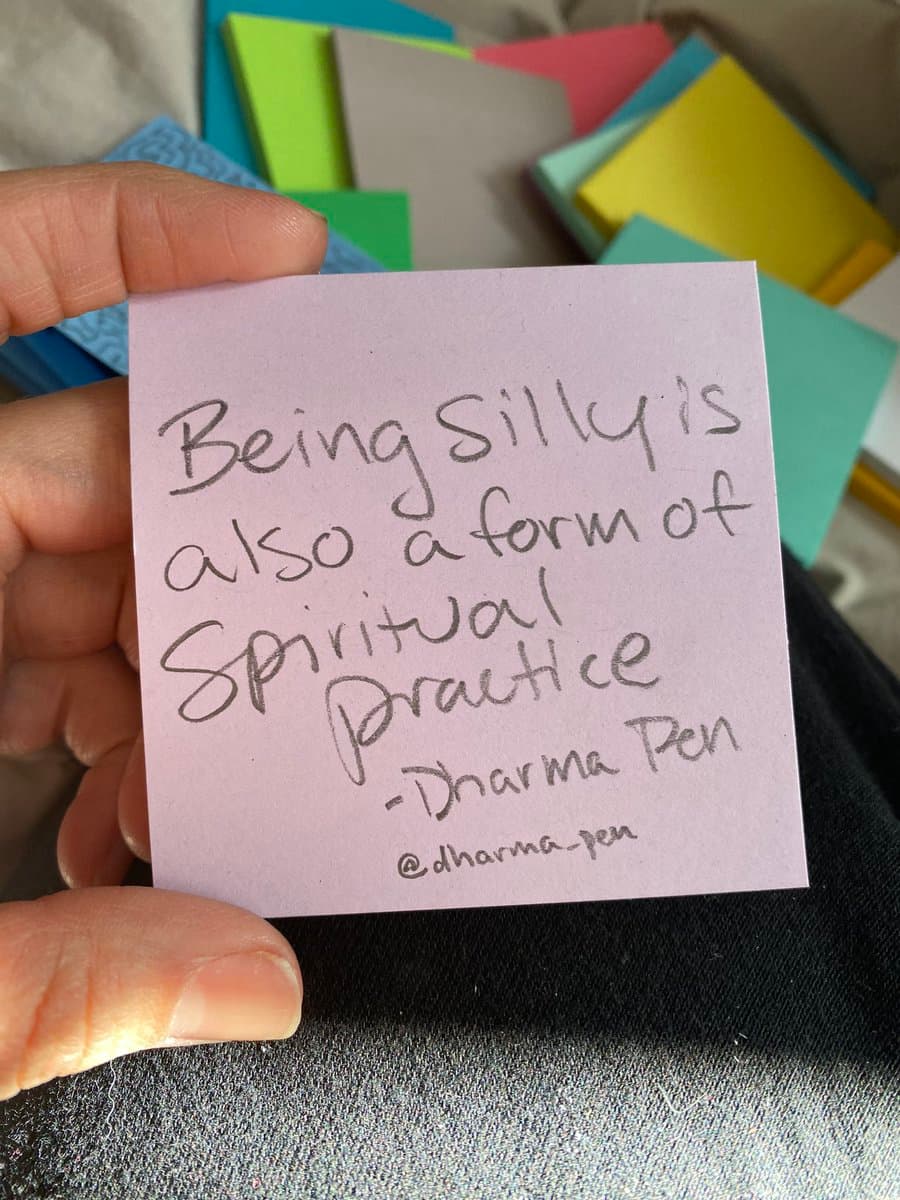 Being silly is
also a form of
Spiritual
practice
-Dharma Pen
@dharma_pen